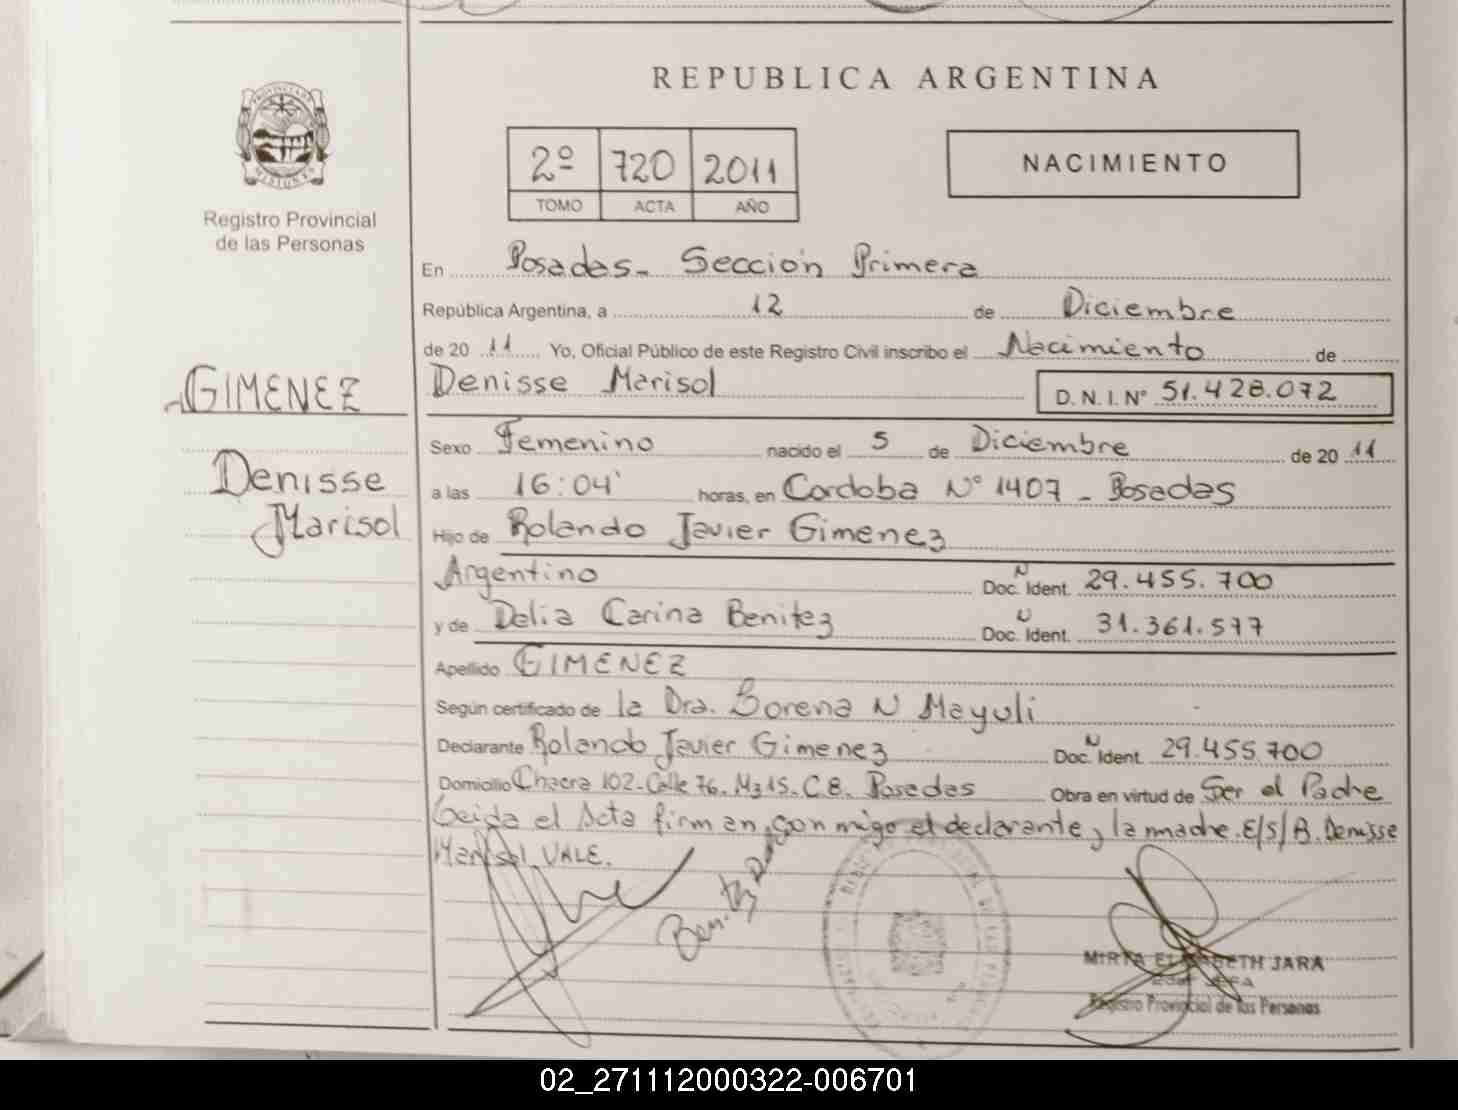 REPUBLICA ARGENTINA
PROVINCIA DE
MISIONES
Registro Provincial
de las Personas
2º 720 2011
TOMO ACTA AÑO
NACIMIENTO
En Posadas - Sección Primera
República Argentina, a 12 de Diciembre
de 20 11 Yo, Oficial Público de este Registro Civil inscribo el Nacimiento de
Denisse Marisol D.N.I. Nº 51.428.072
GIMENEZ
Denisse
Marisol
Sexo Femenino nacido el 5 de Diciembre de 20 11
a las 16:04' horas, en Cordoba Nº 1407 - Posadas
Hijo de Rolando Javier Gimenez
Argentino Doc. Ident. N 29.455.700
y de Delia Carina Benitez Doc. Ident. U 31.361.577
Apellido GIMENEZ
Según certificado de la Dra. Lorena N Mayuli
Declarante Rolando Javier Gimenez Doc. Ident. N 29.455.700
Domicilio Chacra 102-Calle 76. Mz15. C 8. Posadas Obra en virtud de Ser el Padre
Leida el Acta firman conmigo el declarante y la madre. E/S/R. Denisse
Marisol VALE.
Benitez
MIRTA ELIZABETH JARA
JEFA
Registro Provincial de las Personas
02_271112000322-006701